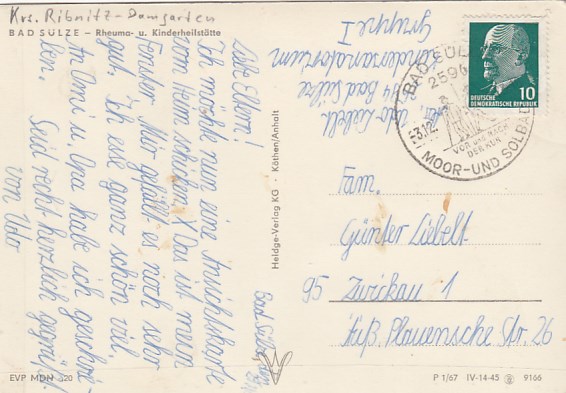 Krs. Ribnitz-Damgarten
BAD SÜLZE – Rheuma- u. Kinderheilstätte
Liebe Eltern!
Ich möchte nun eine Ansichtskarte
vom Heim schicken. X Das ist mein
Fenster. Mir gefällt es noch sehr
gut. Ich esse ganz schön viel.
An Omi u. Opa habe ich geschrie-
ben. Seid recht herzlich gegrüßt
von Udo
Bad Sülze
Udo Liebelt
Bad Sülze
Kindersanatorium
Gruppe I
Heldge-Verlag KG · Köthen/Anhalt
DEUTSCHE
DEMOKRATISCHE REPUBLIK
10
BAD SÜLZE
2594
-3.12.
VOR UND NACH
DER KUR
MOOR-UND SOLBAD
Fam.
Günter Liebelt
95 Zwickau 1
Äuß. Plauensche Str. 26
EVP MDN 20
P 1/67 IV-14-45 9166